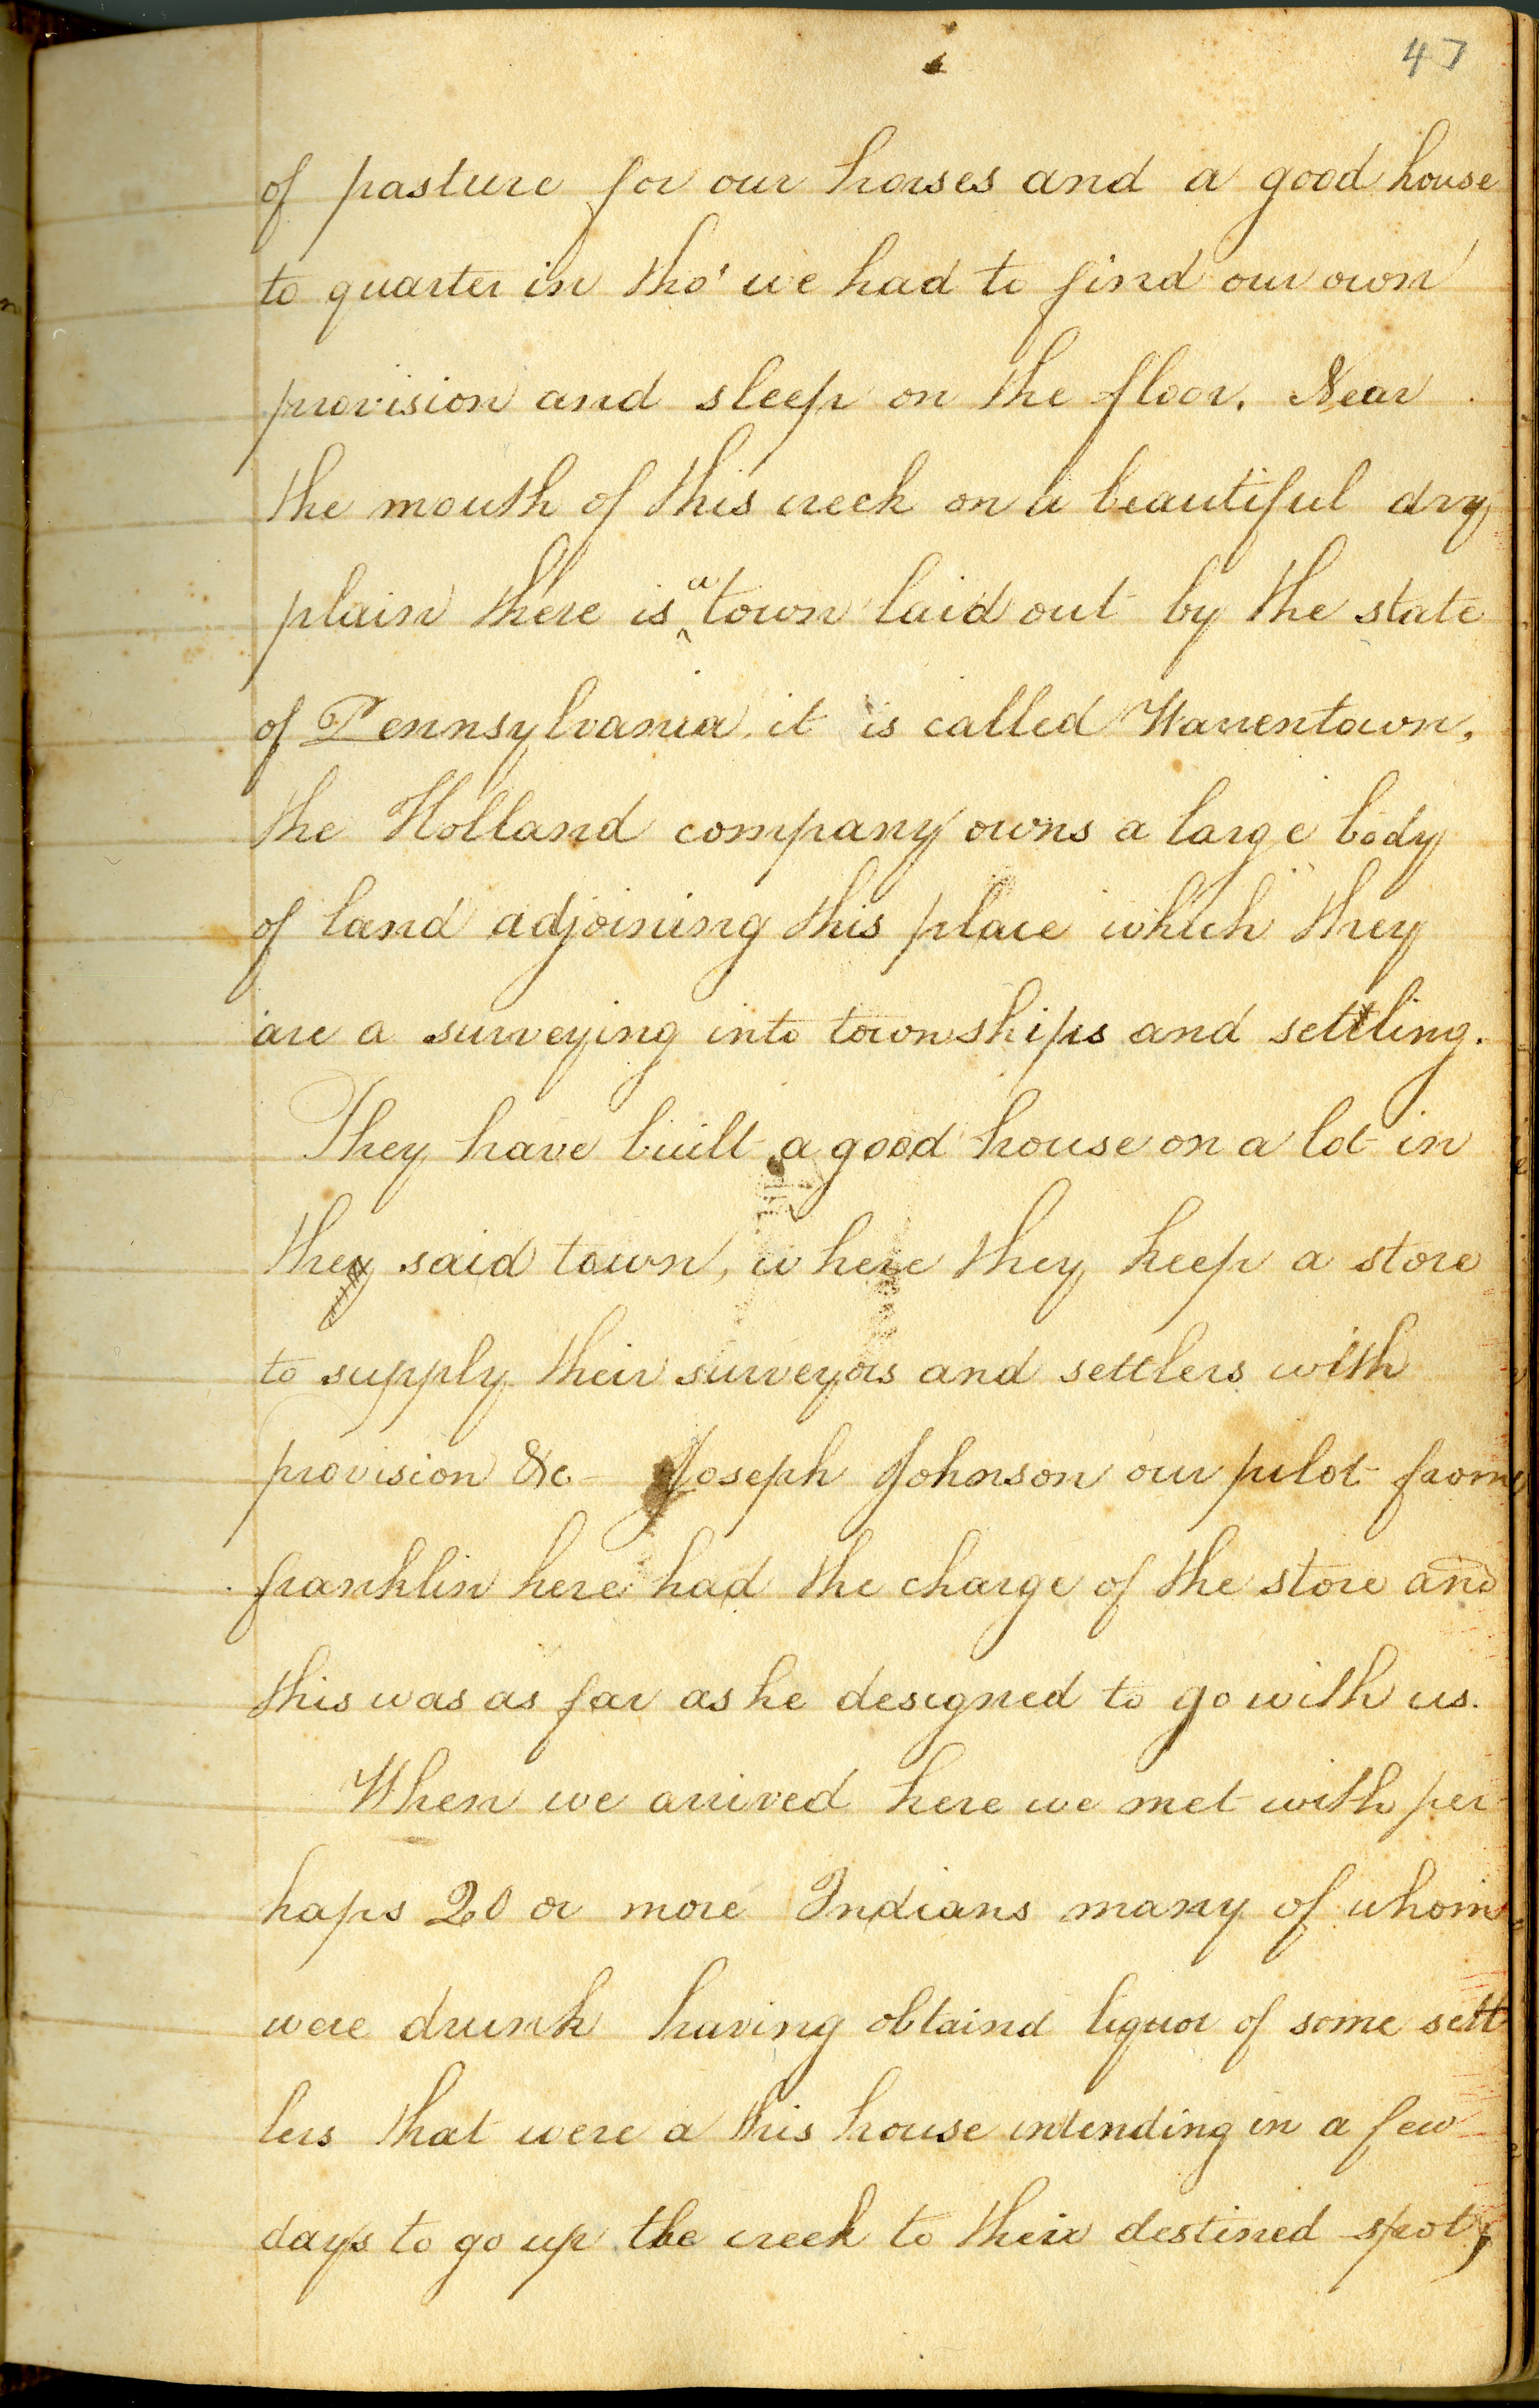 47
of pasture for our horses and a good house
to quarter in tho' we had to find our own
provision and sleep on the floor. Near
the mouth of this creek on a beautiful dry
plain there is a town laid out by the state
of Pennsylvania it is called Warrentown,
the Holland company owns a large body
of land adjoining this place which they
are a surveying into townships and settling.
They have built a good house on a lot in
the said town, where they keep a store
to supply their surveyors and settlers with
provision &c - Joseph Johnson our pilot from
franklin here had the charge of the store and
this was as far as he designed to go with us.
When we arrived here we met with per
haps 20 or more Indians many of whom
were drunk having obtaind liquor of some sett
lers that were a this house intending in a few
days to go up the creek to their destined spot,